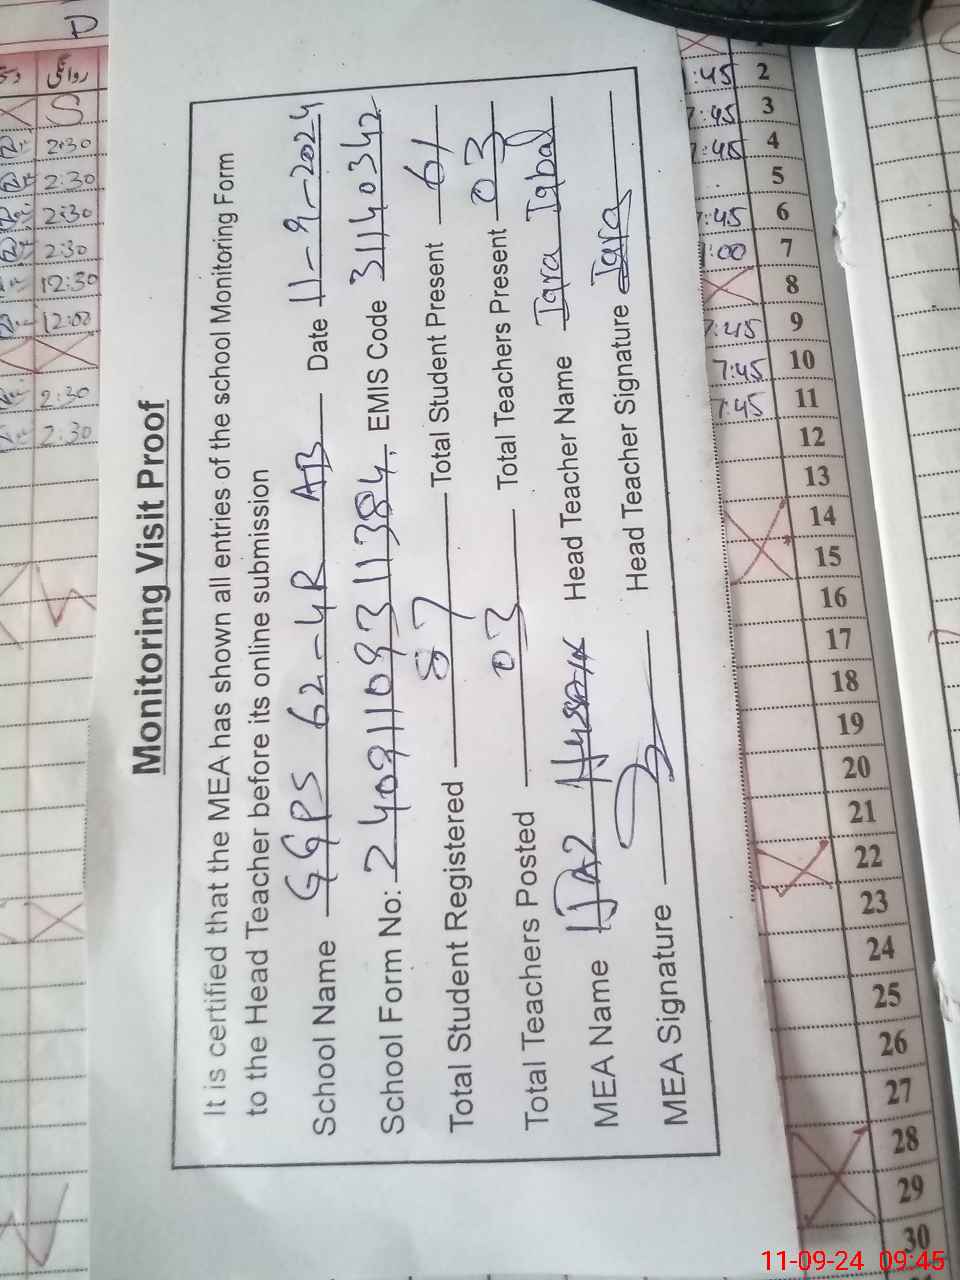 Monitoring Visit Proof
It is certified that the MEA has shown all entries of the school Monitoring Form
to the Head Teacher before its online submission
School Name GGPS 62-4R AB Date 11-9-2024
School Form No: 24091109311384. EMIS Code 31140342
Total Student Registered 87 Total Student Present 61
Total Teachers Posted 03 Total Teachers Present 03
MEA Name IJAZ Hussain Head Teacher Name Iqra Iqbal
MEA Signature Head Teacher Signature Iqra
D
روانگی
S
2:30
2:30
2:30
2:30
12:30
12:00
2:30
2:30
:45 2
7:45 3
7:45 4
5
7:45 6
:00 7
8
7:45 9
7:45 10
7:45 11
12
13
14
15
16
17
18
19
20
21
22
23
24
25
26
27
28
29
30
11-09-24 09:45